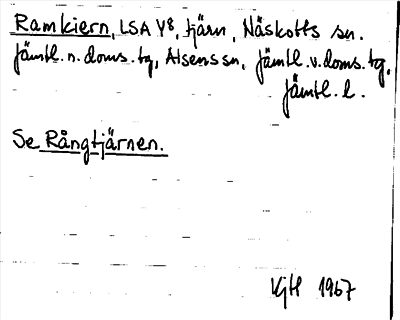 Ramkiern, LSA Y8, tjärn, Näskotts sn.
Jämtl. n. doms. tg, Alsens sn, Jämtl. v. doms. tg,
Jämtl. l.
Se Rångtjärnen.
VjH 1967